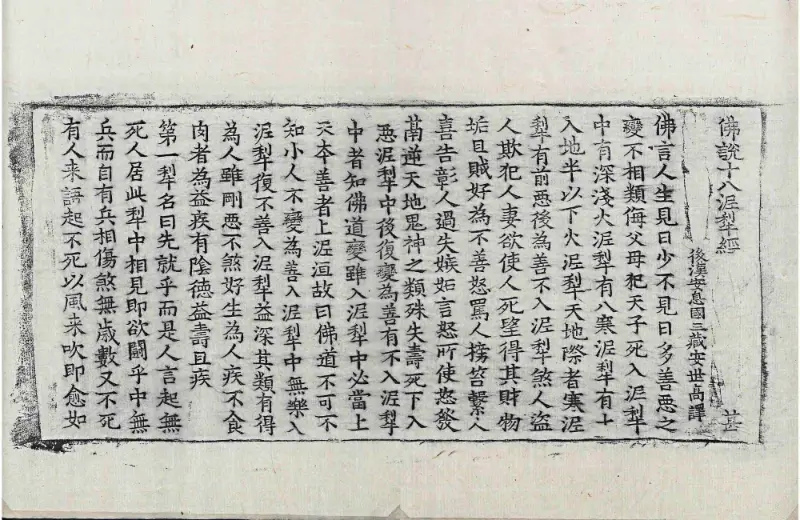 佛說十八泥犁經
後漢安息國三藏安世高譯 甚
佛言人生見日少不見日多善惡之
變不相類侮父母犯天子死入泥犁
中有深淺火泥犁有八寒泥犁有十
入地半以下火泥犁天地際者寒泥
犁有前惡後為善不入泥犁煞人盜
人欺犯人妻欲使人死望得其財物
垢且賊好為不善怒罵人搒笞繫人
喜告彰人過失嫉妬言怒所使怒發
萬逆天地鬼神之類殊失壽死下入
惡泥犁中後復變為善有不入泥犁
中者知佛道變雖入泥犁中必當上
天本善者上泥洹故曰佛道不可不
知小人不變為善入泥犁中無樂入
泥犁復不善入泥犁益深其類有得
為人雖剛惡不煞好生為人疾不食
肉者為益疾有陰德益壽且疾
第一犁名曰先就乎而是人言起無
死人居此犁中相見即欲鬭乎中無
兵而自有兵相傷煞無歲數又不死
有人来語起不死以風来吹即愈如